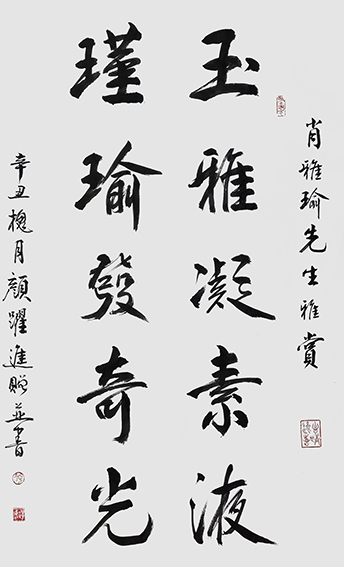 肖雅瑜先生雅赏
玉雅凝素液
瑾瑜發奇光
辛丑槐月顏躍進贈並書